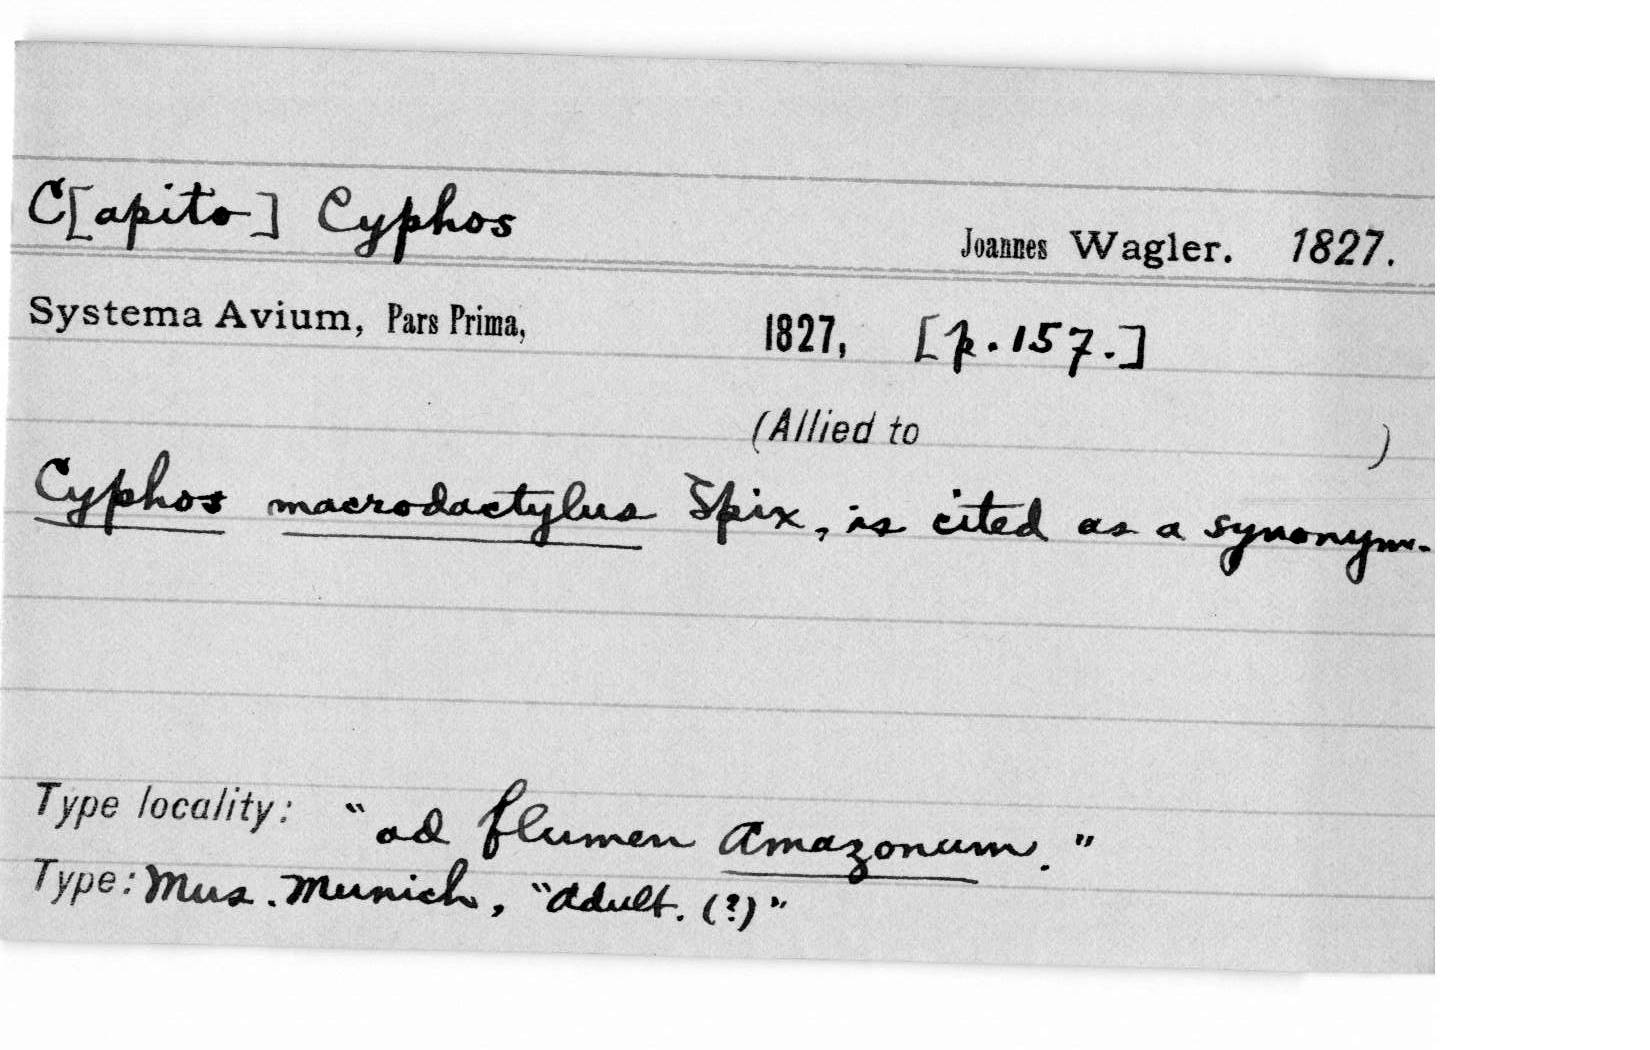 C[apito] Cyphos
Joannes Wagler. 1827.
Systema Avium, Pars Prima, 1827, [p. 157.]
(Allied to )
Cyphos macrodactylus Spix, is cited as a synonym.
Type locality: "ad flumen Amazonum."
Type: Mus. Munich, "Adult. (?)"